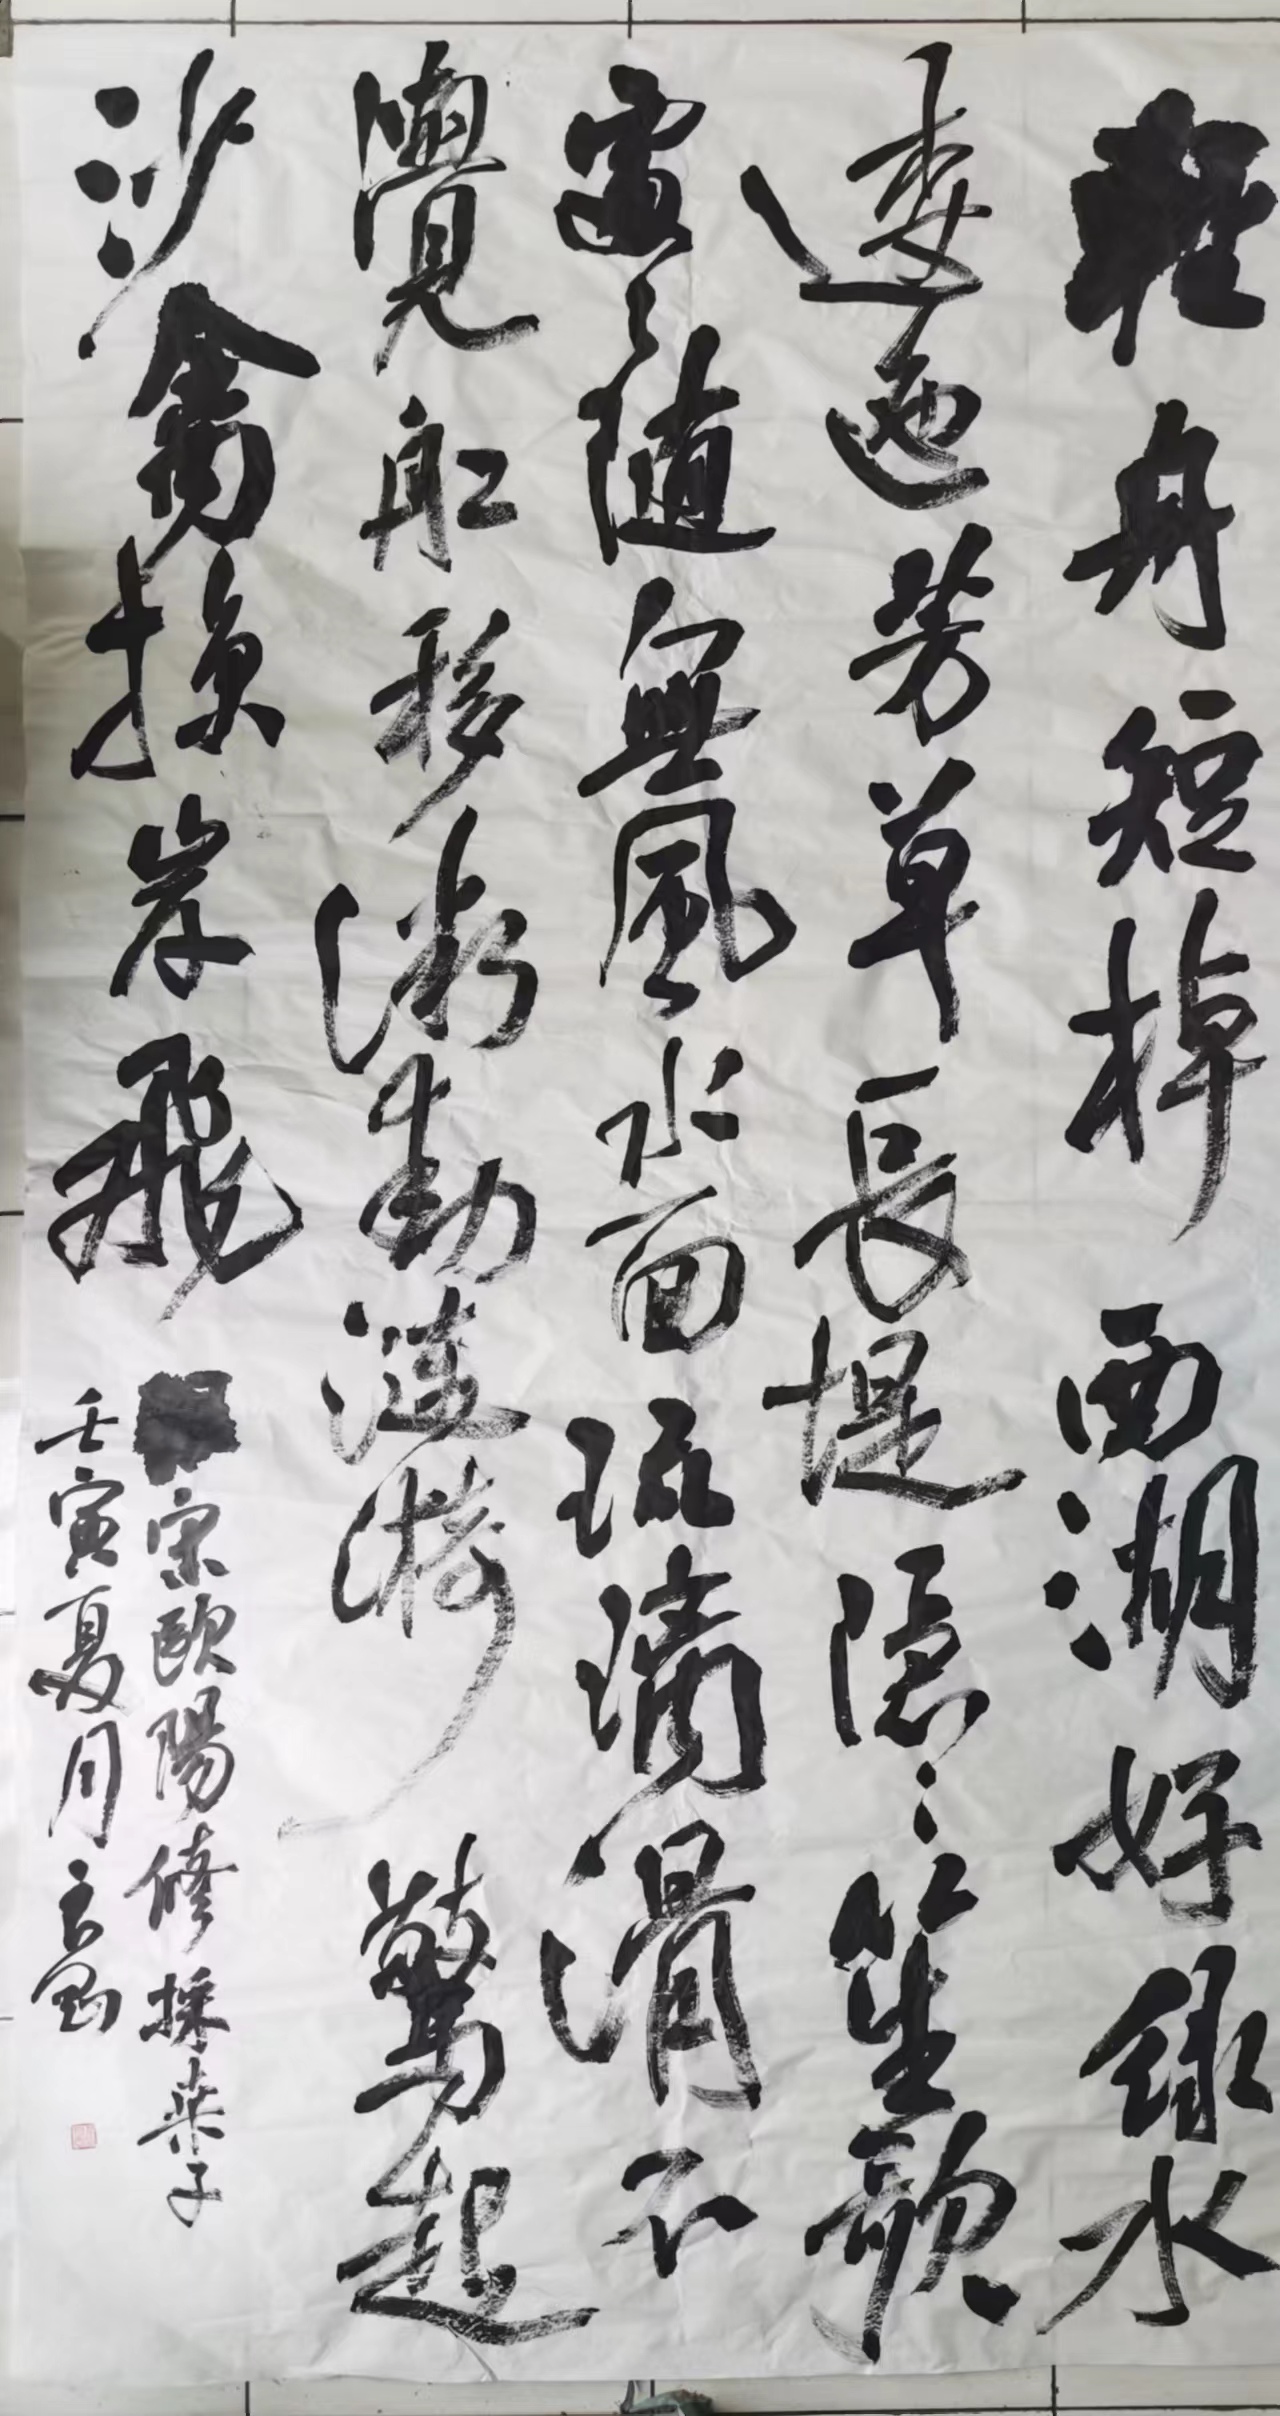 輕舟短棹西湖好綠水
逶迤芳草長堤隱〻笙歌
處〻隨無風水面琉璃滑不
覺舡移漸動漣漪驚起
沙禽掠岸飛
宋歐陽修採桑子
壬寅夏月